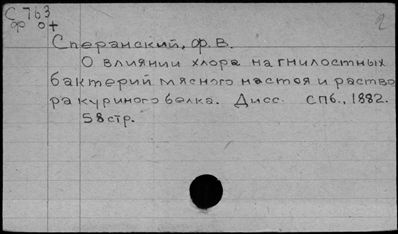 С 763
ф 0+
2
Сперанский, Ф.В.
О влиянии хлора на гнилостных
бактерий мясного настоя и раство
ра куриного белка. Дисс. СПб., 1882.
58 стр.